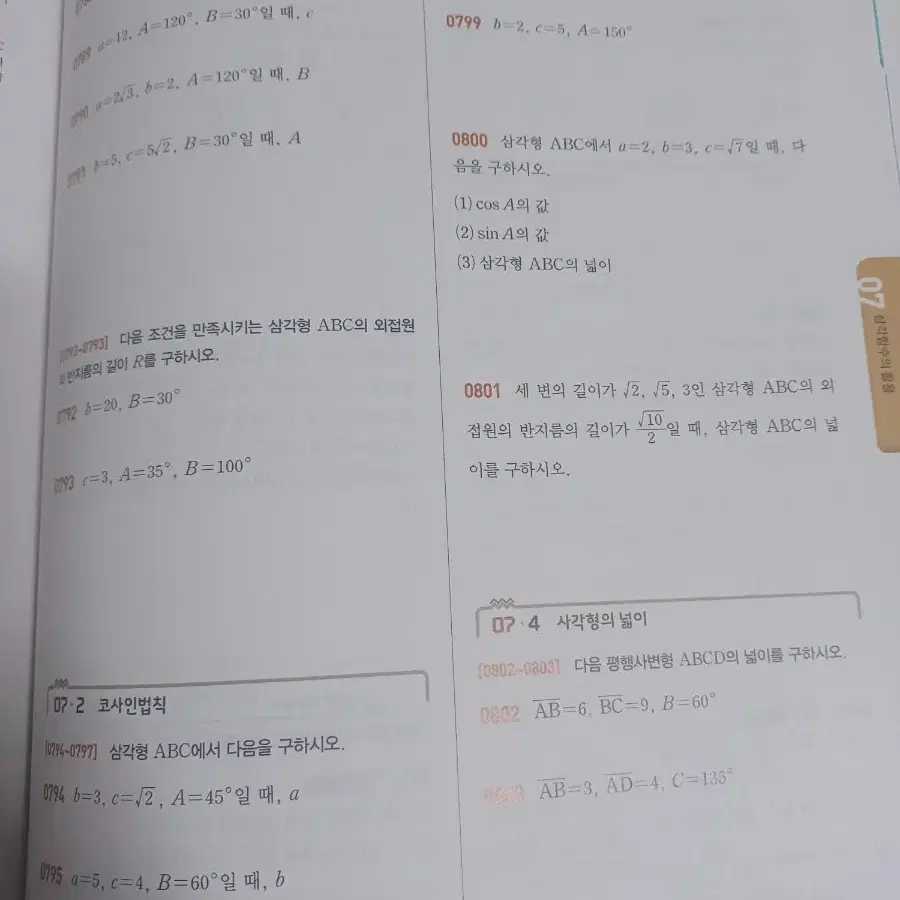 0789 a=12, A=120°, B=30°일 때, c
0790 a=2√3, b=2, A=120°일 때, B
0791 b=5, c=5√2, B=30°일 때, A
[0792~0793] 다음 조건을 만족시키는 삼각형 ABC의 외접원
의 반지름의 길이 R를 구하시오.
0792 b=20, B=30°
0793 c=3, A=35°, B=100°
07·2 코사인법칙
[0794~0797] 삼각형 ABC에서 다음을 구하시오.
0794 b=3, c=√2, A=45°일 때, a
0795 a=5, c=4, B=60°일 때, b
0799 b=2, c=5, A=150°
0800 삼각형 ABC에서 a=2, b=3, c=√7일 때, 다
음을 구하시오.
(1) cos A의 값
(2) sin A의 값
(3) 삼각형 ABC의 넓이
0801 세 변의 길이가 √2, √5, 3인 삼각형 ABC의 외
접원의 반지름의 길이가 √10/2일 때, 삼각형 ABC의 넓
이를 구하시오.
07·4 사각형의 넓이
[0802~0803] 다음 평행사변형 ABCD의 넓이를 구하시오.
0802 AB=6, BC=9, B=60°
0803 AB=3, AD=4, C=135°
07 삼각함수의 활용